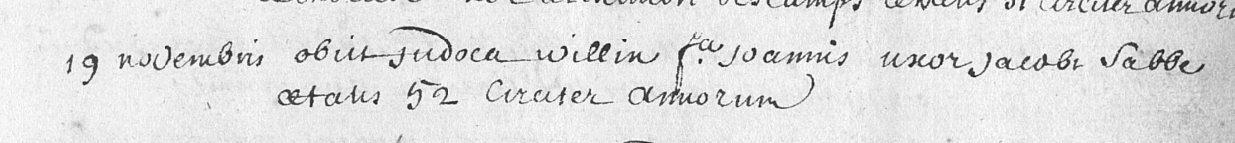 descamps circiter annor
19 novembris obiit judoca willin f.a joannis uxor jacobi Sabbe
ætatis 52 Circiter annorum